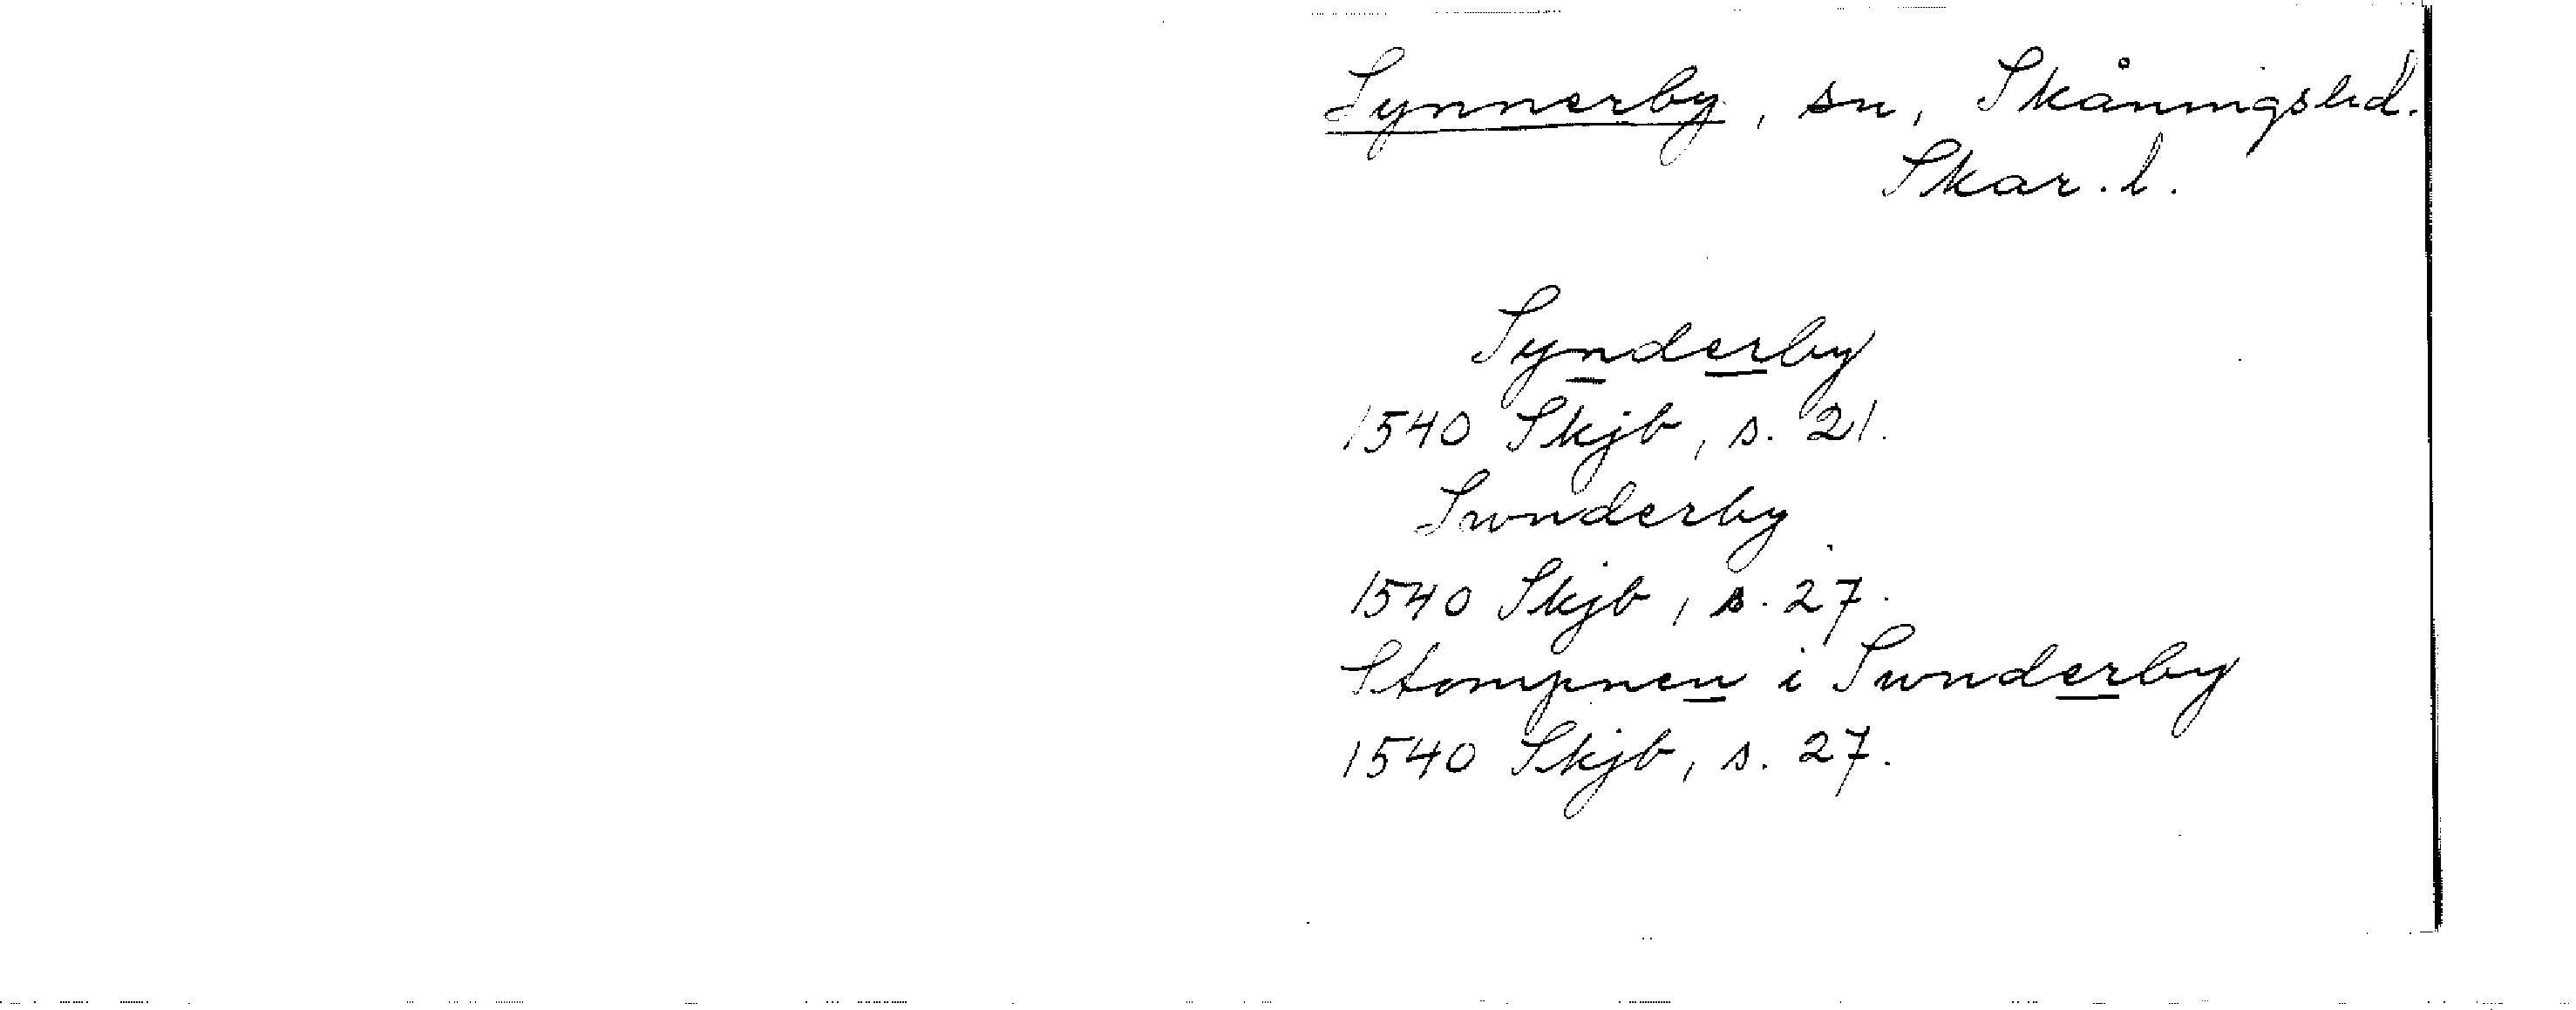 Synnerby, sn, Skånings hd.
Skar. l.
Synderby
1540 Skjb, s. 21.
Swnderby
1540 Skjb, s. 27.
Stompnen i Swnderby
1540 Skjb, s. 27.